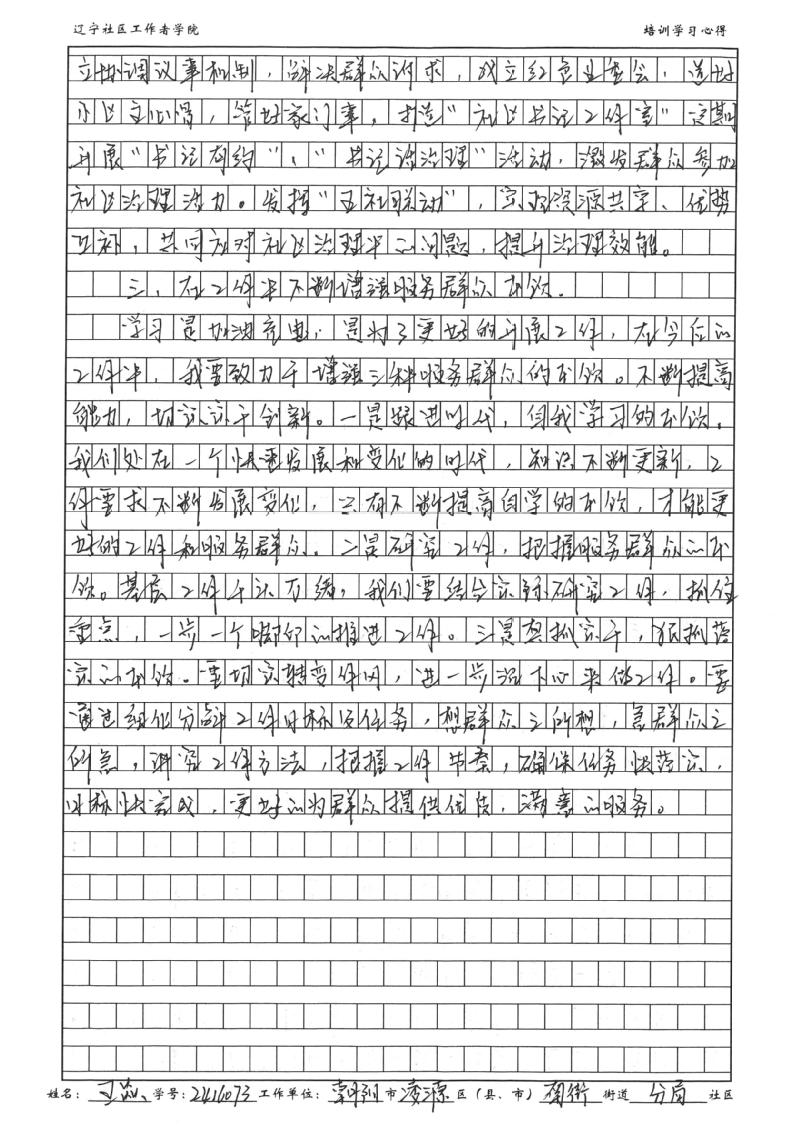 辽宁社区工作者学院 培训学习心得
立协调议事机制，解决群众诉求，成立红色业委会，选好
小区主心骨，管好家门事，打造“社区书记工作室”定期
开展“书记有约”、“书记话治理”活动，激发群众参加
社区治理活力。发挥“五社联动”，实现资源共享、优势
互补，共同应对社区治理中的问题，提升治理效能。
三、在工作中不断增强服务群众本领。
学习是加油充电，是为了更好的开展工作，在今后的
工作中，我要致力于增强三种服务群众的本领。不断提高
能力，切实实干创新。一是跟进时代，自我学习的本领。
我们处在一个快速发展和变化的时代，知识不断更新，工
作要求不断发展变化，只有不断提高自学的本领，才能更
好的工作和服务群众。二是研究工作，把握服务群众的本
领。基层工作千头万绪，我们要结合实际研究工作，抓住
重点，一步一个脚印的推进工作。三是想抓实干，狠抓落
实的本领。要切实转变作风，进一步沉下心来做工作。要
通过细化分解工作目标及任务，想群众之所想，急群众之
所急，讲究工作方法，把握工作节奏，确保任务快落实，
目标快完成，更好的为群众提供优质，满意的服务。
姓名： 学号：2416073 工作单位：朝阳 市 凌源 区（县、市） 南街 街道 分局 社区